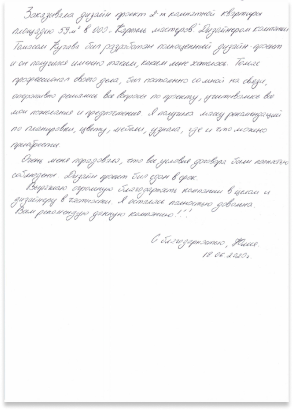 Заказывала дизайн проект 2-х комнатной квартиры
площадью 59 м² в ООО. Дизайнером компании
был разработан полноценный дизайн проект
и он получился именно таким, каким мне хотелось.
профессионал своего дела, был постоянно со мной на связи,
оперативно решались все вопросы по проекту, учитывались все
мои пожелания и предпочтения. Я получила массу рекомендаций
по планировки, цвету, мебели, узнала, где и что можно
приобрести.
Очень меня порадовало, что все условия договора были
соблюдены. Дизайн проект был сдан в срок.
Выражаю огромную благодарность компании в целом и
дизайнеру в частности. Я осталась полностью довольна.
Всем рекомендую данную компанию!!!
С благодарностью, Юлия.
18.06.2020г.